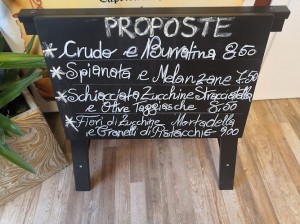 PROPOSTE
Crudo e Burratina 8,50
Spianata e Melanzane 7,50
Schiacciata Zucchine Stracciatella
e Olive Taggiasche 8,50
Fiori di Zucchine Mortadella
e Granelli di Pistacchio 9,00